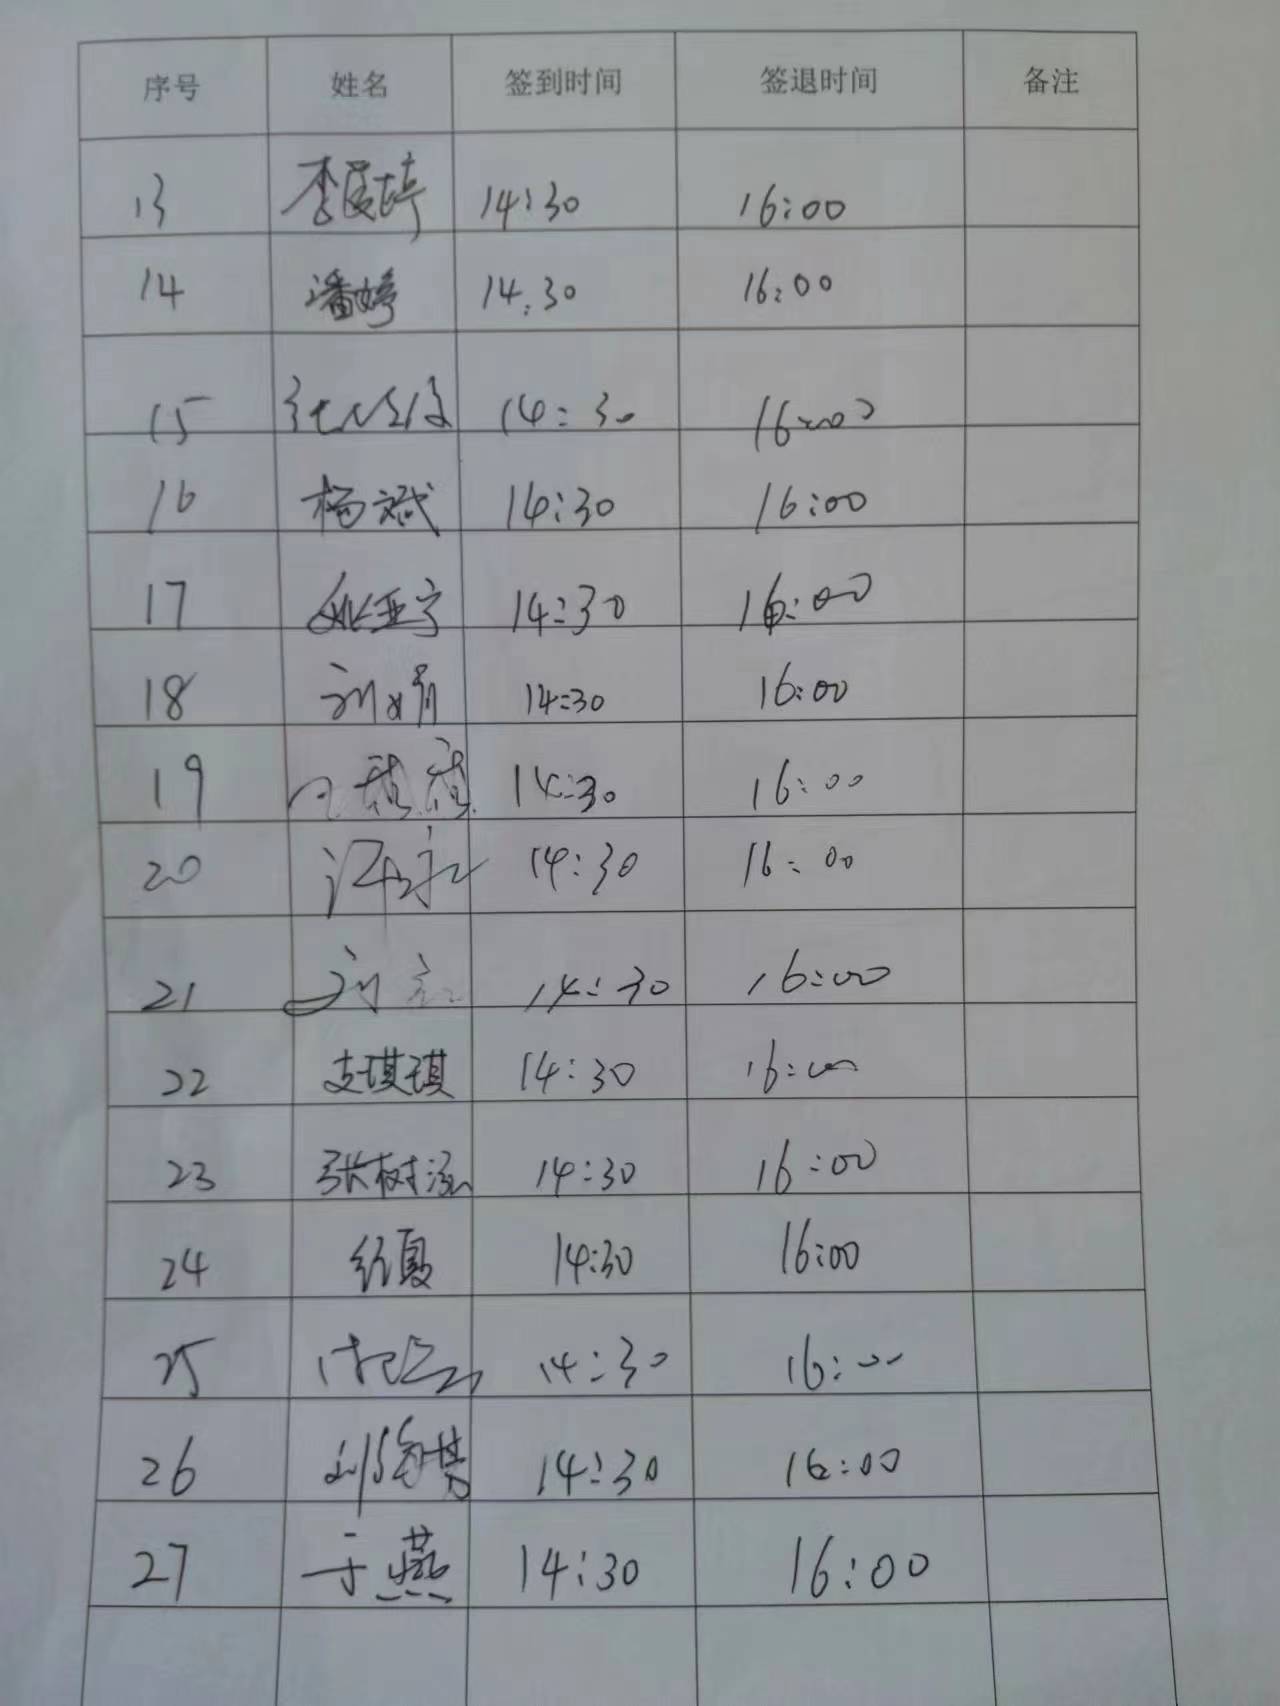 序号 姓名 签到时间 签退时间 备注
13 李 婷 14:30 16:00
14 潘婷 14:30 16:00
15 14:30 16:00
16 杨斌 14:30 16:00
17 姚亚宁 14:30 16:00
18 刘娟 14:30 16:00
19 14:30 16:00
20 14:30 16:00
21 刘 14:30 16:00
22 支琪琪 14:30 16:00
23 张树泓 14:30 16:00
24 夏 14:30 16:00
25 14:30 16:00
26 刘海琪 14:30 16:00
27 于燕 14:30 16:00